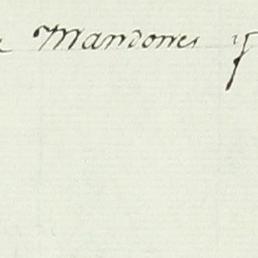 Mandones y